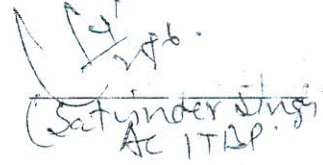 (Satvinder Singh
AC ITBP.